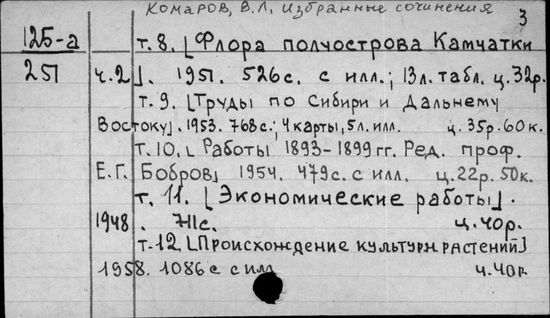 Комаров, В.Л. Избранные сочинения
3
125-а
т. 8. [Флора полуострова Камчатки
251
ч.2]. 1951. 526с. с илл.; 13л. табл. ц. 32р.
т. 9. [Труды по Сибири и Дальнему
Востоку]. 1953. 768с.; 4 карты, 5л. илл. ц. 35р. 60к.
т. 10. [Работы 1893-1899 гг. Ред. проф.
Е.Г. Бобров] 1954. 479с. с илл. ц. 22р. 50к.
т. 11. [Экономические работы].
1948. 711с. ц. 40р.
т. 12 [Происхождение культурн растений]
1958. 1086с с илл ц. 40р.